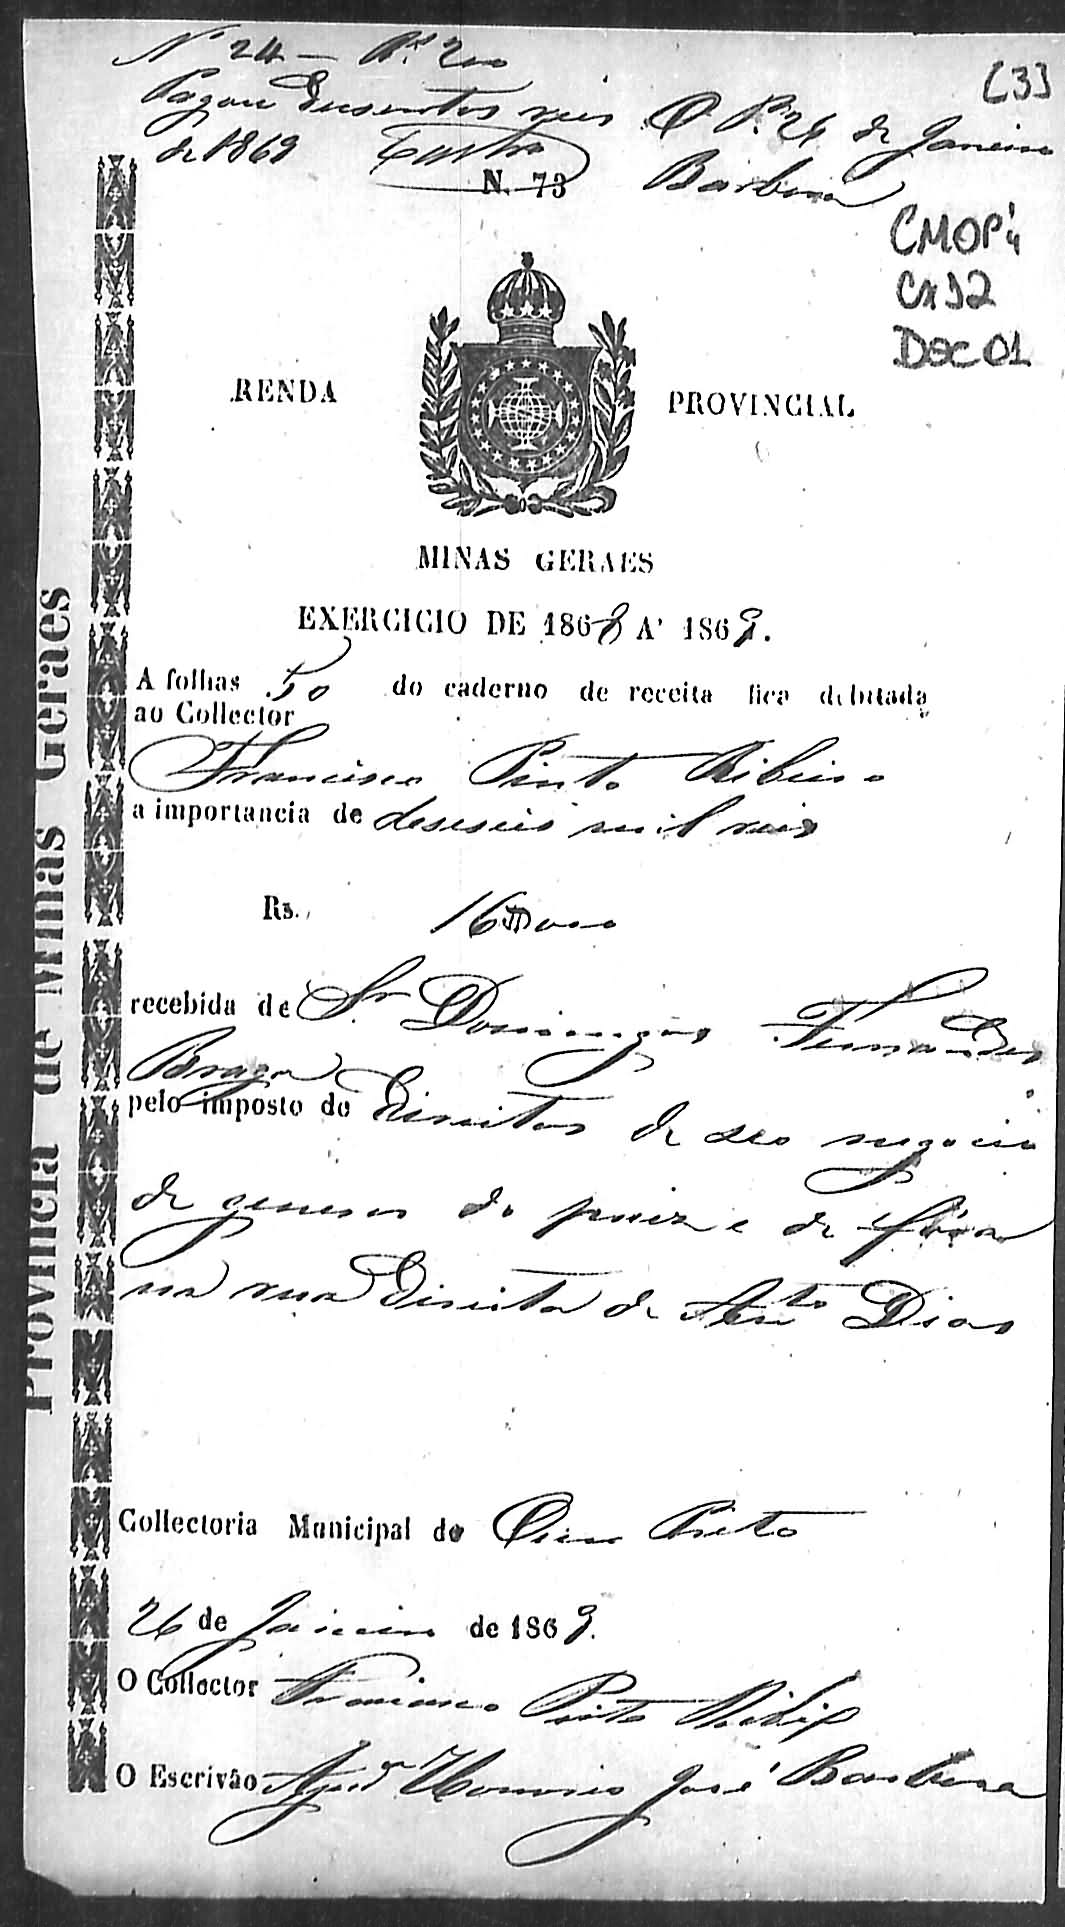 N 24 — Rs 200
[3]
Pagou Dusentos reis O P. 26 de Janeiro
de 1869 Castro Barbosa
N. 73
CMOP
Cx 32
Doc 01
RENDA PROVINCIAL
MINAS GERAES
EXERCICIO DE 1868 A' 1869.
A folhas 50 do caderno de receita fica debitada
ao Collector
Francisco Pinto Ribeiro
a importancia de deseseis mil reis
Rs. 16$000
recebida de Sr Domingos Fernandes
Braga
pelo imposto de Direitos de seo negocio
de generos do paiz e de fóra
na rua Direita de Anto Dias
Collectoria Municipal de Ouro Preto
26 de Janeiro de 1869.
O Collector Francisco Pinto Ribro
O Escrivão Ajude Honorio José Barbosa
Provincia de Minas Geraes